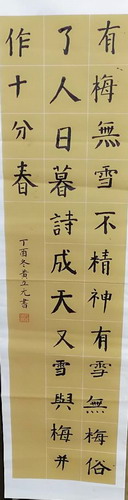 有梅無雪不精神有雪無梅俗
了人日暮詩成天又雪與梅并
作十分春
丁酉冬青玉元書